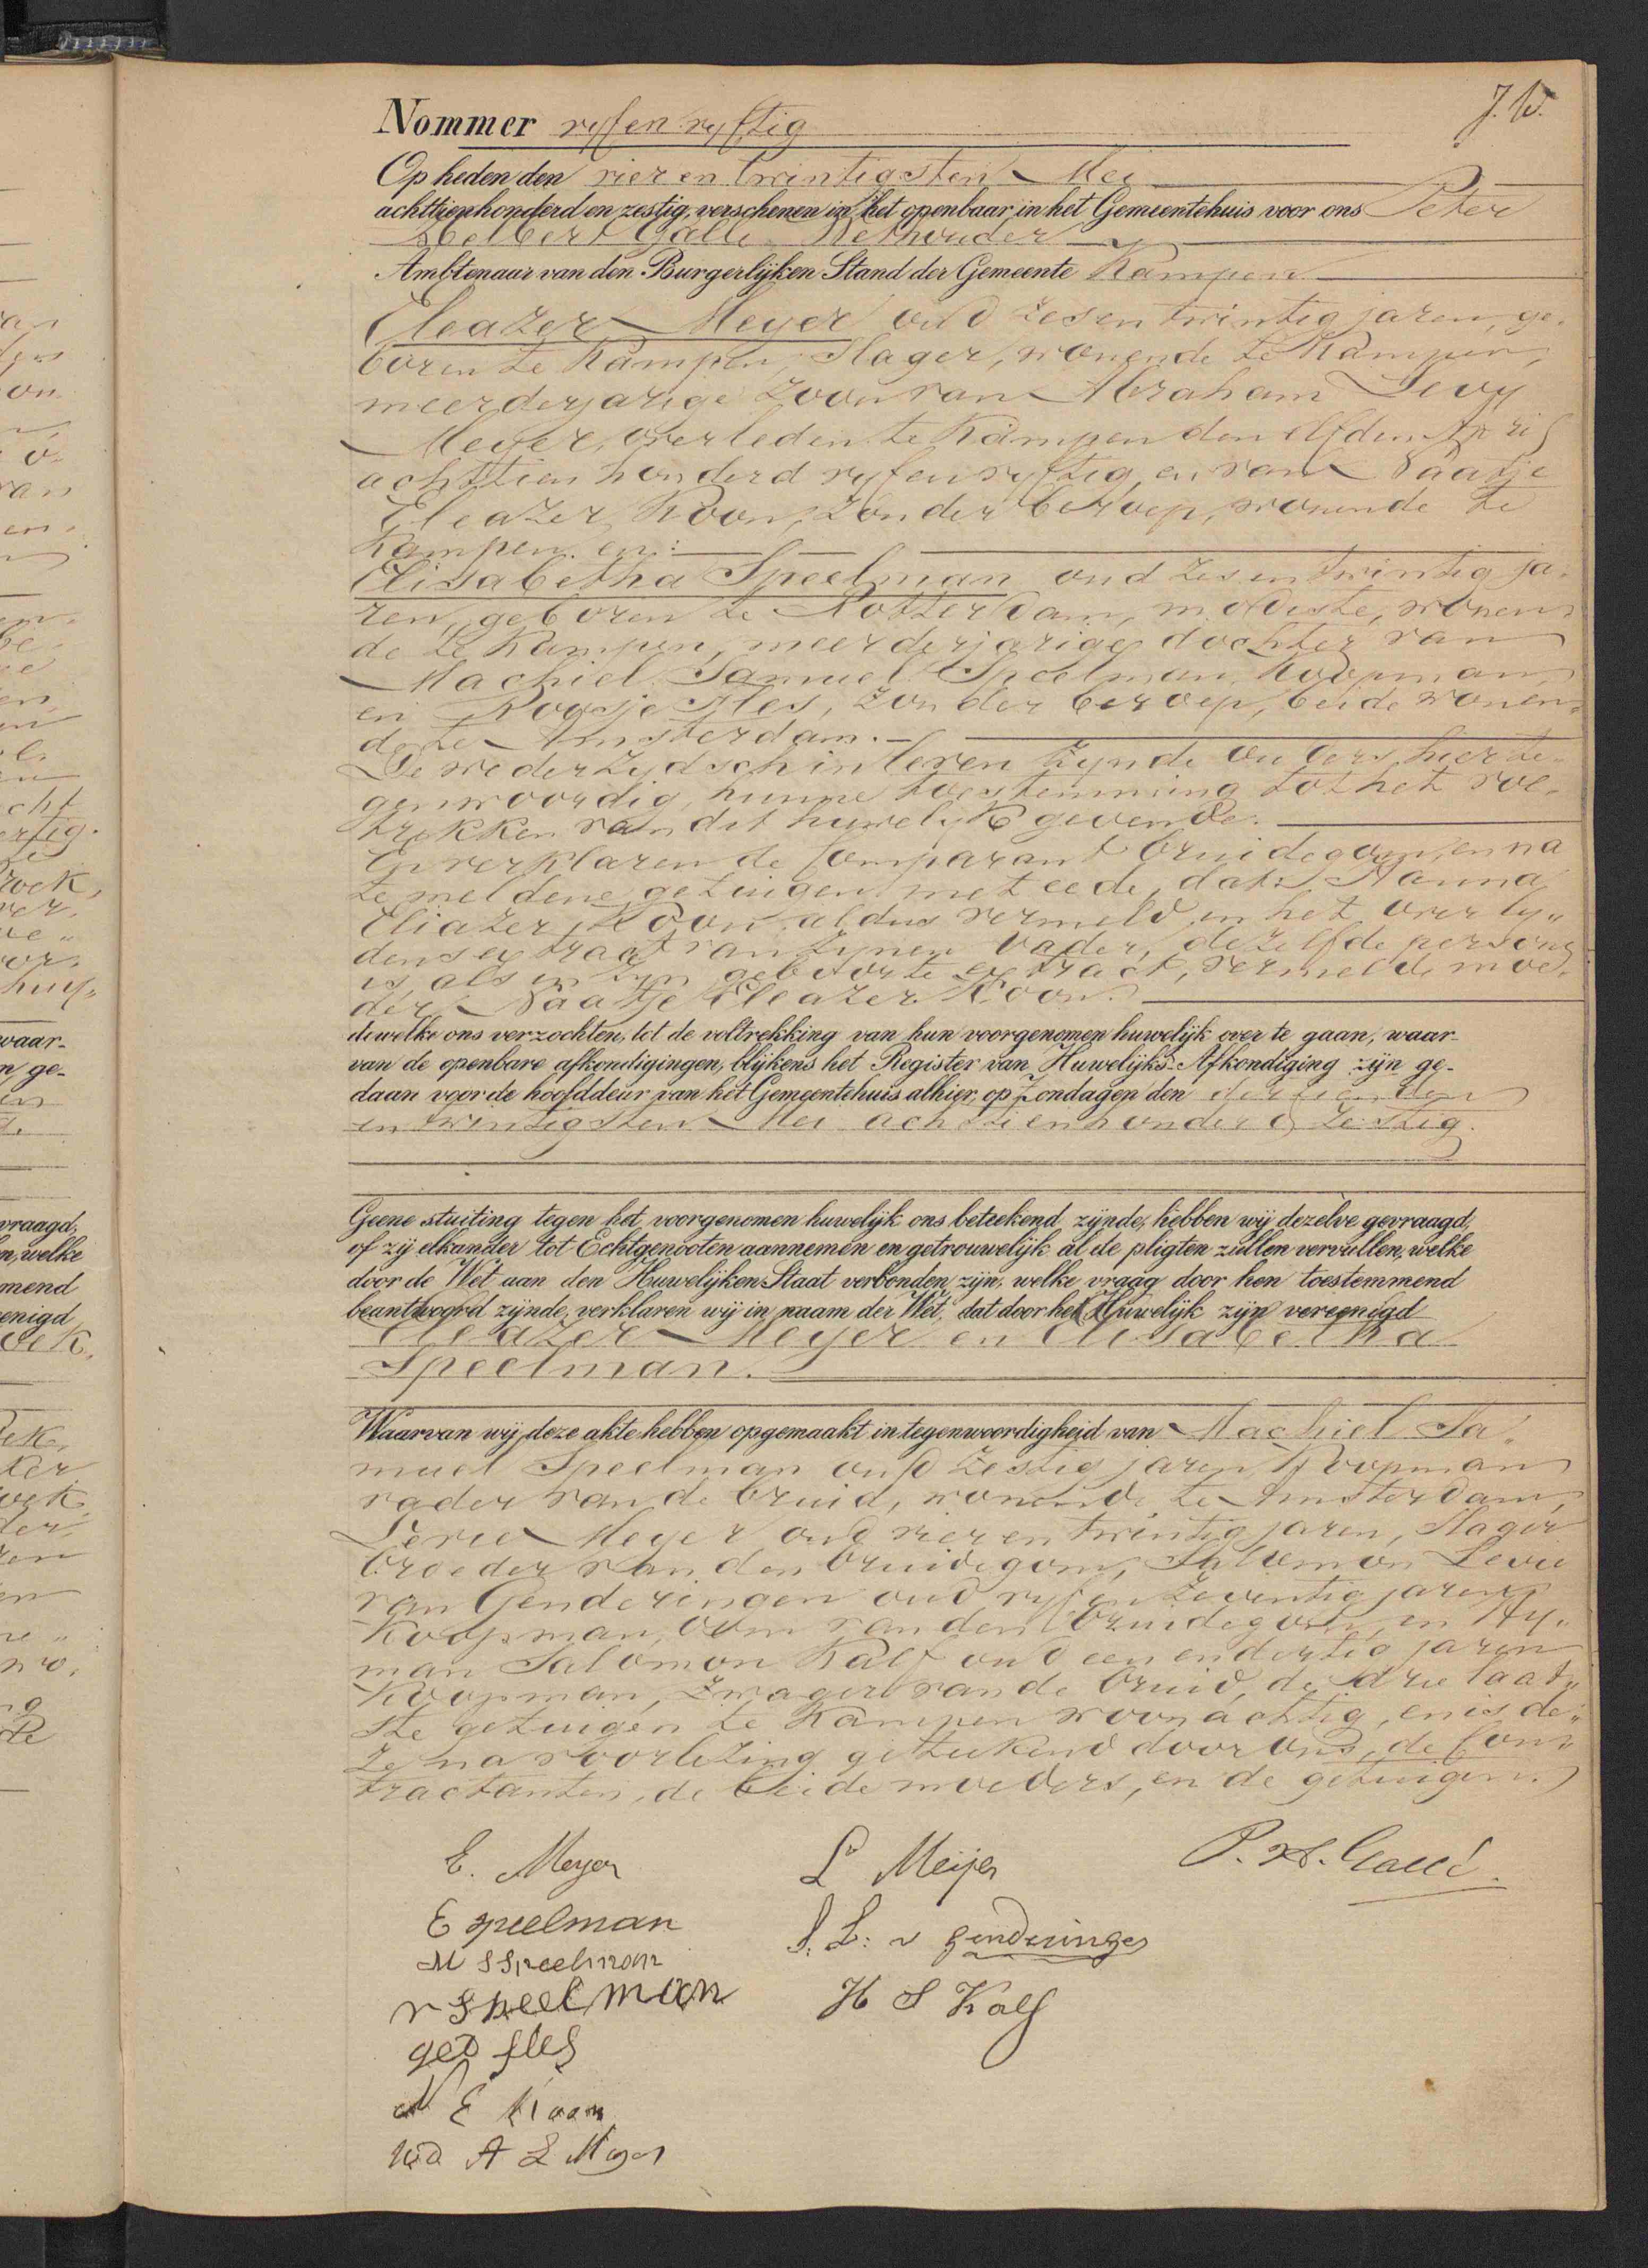 J. W.
Nommer vyf en vyftig
Op heden den vier en twintigsten Mei
achttienhonderd en zestig, verschenen in het openbaar in het Gemeentehuis voor ons Peter
Helbert Gallé Wethouder
Ambtenaar van den Burgerlijken Stand der Gemeente Kampen
Eleazer Meyer oud zes en twintig jaren, ge-
boren te Kampen, Slager, wonende te Kampen,
meerderjarige zoon van Abraham Levy
Meyer, overleden te Kampen den elfden April
achttien honderd vyf en vyftig, en van Naatje
Eleazer Koon, zonder beroep, wonende te
Kampen. en:
Elisabetha Speelman oud zes en twintig ja-
ren, geboren te Rotterdam, modiste, wonen-
de te Kampen, meerderjarige dochter van
Machiel Samuel Speelman, Koopman
en Roosje Fles, zonder beroep, beide wonen-
de te Amsterdam.
De wederzydsch in leven zynde ouders, hierte-
genwoordig, hunne toestemming tot het vol-
trekken van dit huwelyk gevende.
En verklaren de Comparant bruidegom, en na
te meldene getuigen met eede, dat Nanna
Eliazer Koon, aldus vermeld in het overly-
dens extract van zynen vader, dezelfde persoon
is, als in zyn geboorte extract, vermelde moe-
der Naatje Eleazer Koon.
dewelke ons verzochten, tot de voltrekking van hun voorgenomen huwelijk over te gaan, waar-
van de openbare afkondigingen, blijkens het Register van Huwelijks-Afkondiging zijn ge-
daan voor de hoofddeur van het Gemeentehuis alhier, op Zondagen den dertienden
en twintigsten Mei achttienhonderd zestig.
Geene stuiting tegen het voorgenomen huwelijk ons beteekend zijnde, hebben wij dezelve gevraagd,
of zij elkander tot Echtgenooten aannemen en getrouwelijk al de pligten zullen vervullen, welke
door de Wet aan den Huwelijken Staat verbonden zijn. welke vraag door hen toestemmend
beantwoord zijnde, verklaren wij in naam der Wet, dat door het Huwelijk zijn vereenigd
Eleazer Meyer en Elisabetha
Speelman.
Waarvan wij deze akte hebben opgemaakt in tegenwoordigheid van Machiel Sa-
muel Speelman oud zestig jaren, Koopman
vader van de bruid, wonende te Amsterdam,
Levie Meyer oud vier en twintig jaren, Slager
broeder van den bruidegom, Salomon Levie
van Genderingen oud vyf en zeventig jaren
Koopman, Oom van den bruidegom, en Hy-
man Salomon Kalf oud een en dertig jaren
Koopman, Zwager van de bruid, de drie laat-
ste getuigen te Kampen woonachtig, en is de-
ze na voorlezing geteekend door ons, de Con-
tractanten, de beide moeders, en de getuigen.
E. Meyer
L Meijer
P. H. Gallé
E speelman
S. L: v Genderingen
M S Speelman
r Speelman
H S Kalf
geb fles
N E Koon
Wed A L Meyer